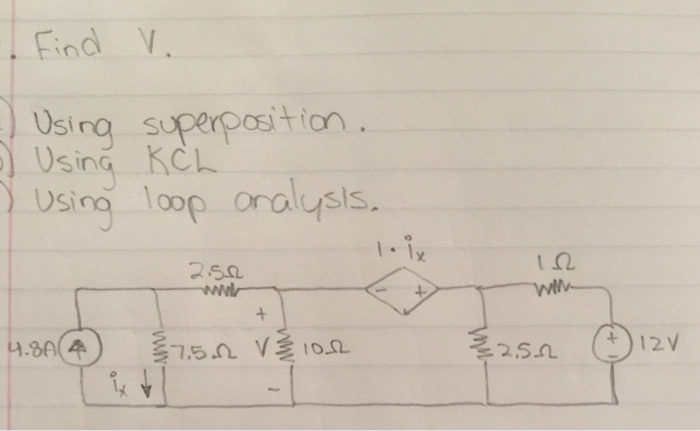 . Find V.
) Using superposition.
) Using KCL
) Using loop analysis.
1·ix
2.5Ω
1Ω
+
- +
4.8A
7.5Ω
V
10Ω
2.5Ω
+
-
12V
ix
-